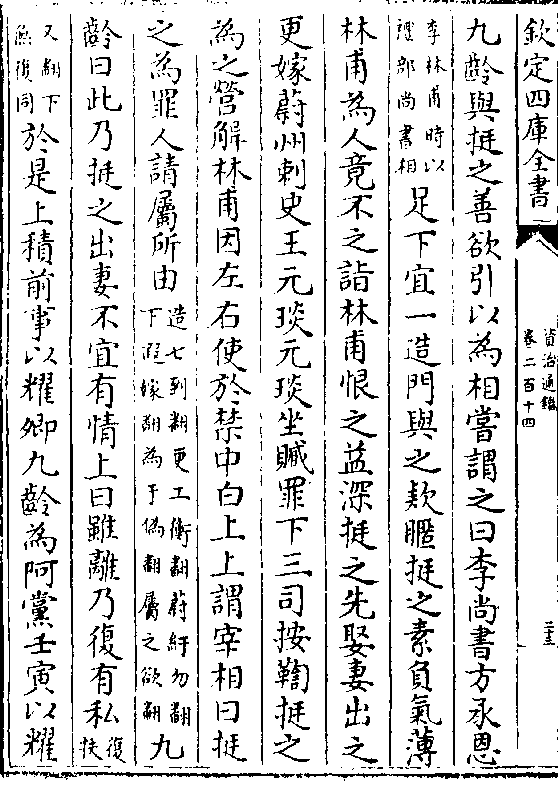 欽定四庫全書
資治通鑑
卷二百十四
二十三
九齡與挺之善欲引以為相嘗謂之曰李尚書方承恩
李林甫時以
禮部尚書相
足下宜一造門與之欵暱挺之素負氣薄
林甫為人竟不之詣林甫恨之益深挺之先娶妻出之
更嫁蔚州刺史王元琰元琰坐贓罪下三司按鞫挺之
為之營解林甫因左右使於禁中白上上謂宰相曰挺
之為罪人請屬所由
造七到翻更工衡翻蔚紆勿翻
下遐嫁翻為于偽翻屬之欲翻
九
齡曰此乃挺之出妻不宜有情上曰雖離乃復有私
復扶
又翻下
無復同
於是上積前事以耀卿九齡為阿黨壬寅以耀